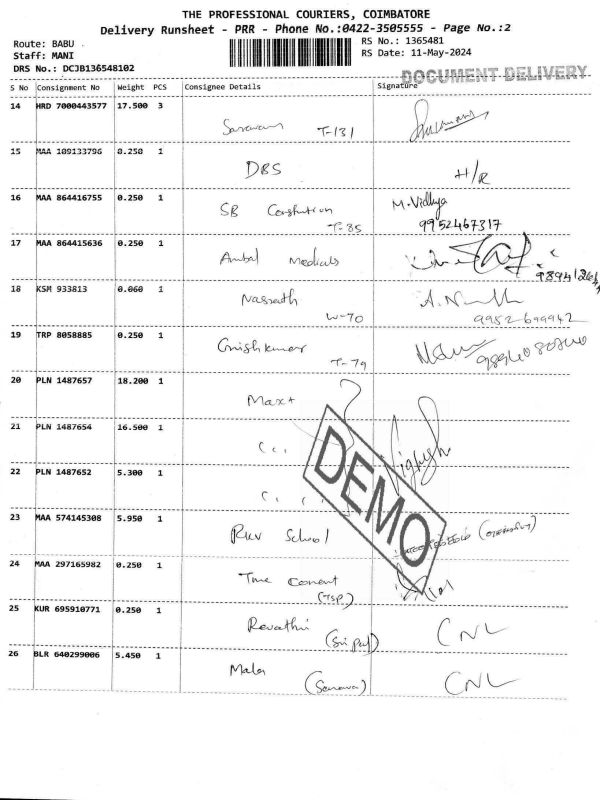 THE PROFESSIONAL COURIERS, COIMBATORE
Delivery Runsheet - PRR - Phone No.:0422-3505555 - Page No.:2
Route: BABU
Staff: MANI
DRS No.: DCJB136548102
RS No.: 1365481
RS Date: 11-May-2024
DOCUMENT DELIVERY
S No Consignment No Weight PCS Consignee Details Signature
14 HRD 7000443577 17.500 3
T-131
15 MAA 109133796 0.250 1 DBS H/R
16 MAA 864416755 0.250 1 SB M.Vidhya
T-85 9952467317
17 MAA 864415636 0.250 1 Ambal Medicals
18 KSM 933813 0.060 1
W-70 9952699942
19 TRP 8058885 0.250 1
T-79
20 PLN 1487657 18.200 1
21 PLN 1487654 16.500 1
22 PLN 1487652 5.300 1
DEMO
23 MAA 574145308 5.950 1 School
24 MAA 297165982 0.250 1
(TSP)
25 KUR 695910771 0.250 1 Revathi CNL
26 BLR 640299006 5.450 1 Mala CNL